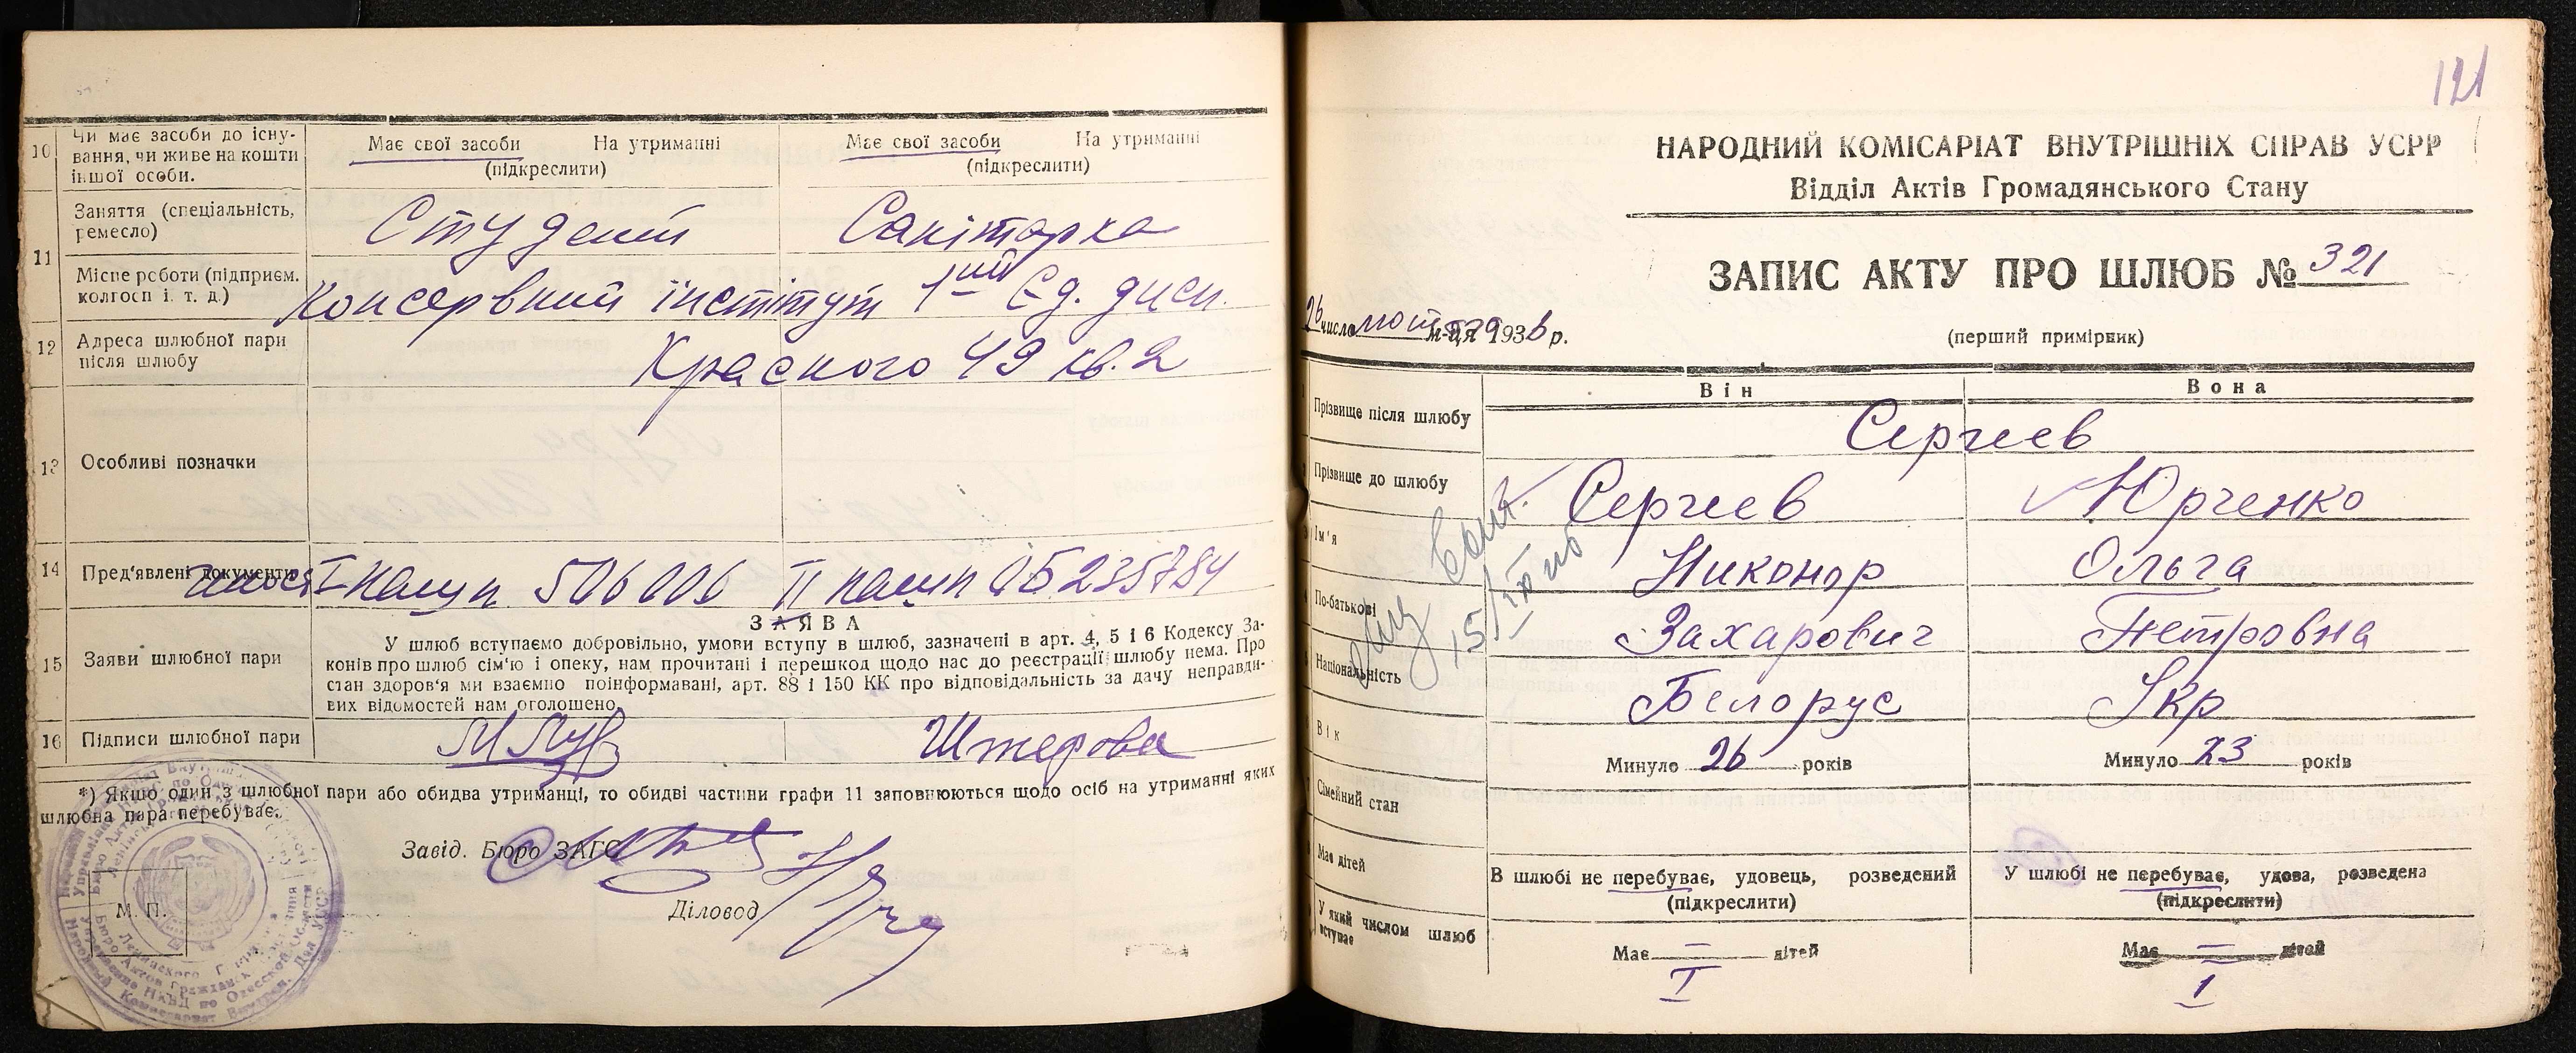 10 Чи має засоби до існу-
вання, чи живе на кошти
іншої особи.
Має свої засоби На утриманні
(підкреслити)
Має свої засоби На утриманні
(підкреслити)
11 Заняття (спеціальність,
ремесло)
Студент
Санітарка
Місце роботи (підприєм.
колгосп і т. д.)
Консервний інстітут
1ий Єд. дисп.
12 Адреса шлюбної пари
після шлюбу
Красного 49 кв. 2
13 Особливі позначки
14 Пред'явлені документи
I пашп 506006 II пашп ОБ 235784
15 Заяви шлюбної пари
ЗАЯВА
У шлюб вступаємо добровільно, умови вступу в шлюб, зазначені в арт. 4, 5 і 6 Кодексу За-
конів про шлюб сім'ю і опеку, нам прочитані і перешкод щодо нас до реєстрації шлюбу нема. Про
стан здоров'я ми взаємно поінформавані, арт. 88 і 150 КК про відповідальність за дачу неправди-
вих відомостей нам оголошено
16 Підписи шлюбної пари
*) Якщо один з шлюбної пари або обидва утриманці, то обидві частини графи 11 заповнюються щодо осіб на утриманні яких
шлюбна пара перебуває.
Завід. Бюро ЗАГС
Діловод
М. П.
121
НАРОДНИЙ КОМІСАРІАТ ВНУТРІШНІХ СПРАВ УСРР
Відділ Актів Громадянського Стану
ЗАПИС АКТУ ПРО ШЛЮБ № 321
26 число м-ця 1936 р.
(перший примірник)
Він Вона
Прізвище після шлюбу
Сергеев
Прізвище до шлюбу
Сергеев Юрченко
Ім'я
Никонор Ольга
По-батькові
Захарович Петровна
Національність
Белорус Укр
Вік
Минуло 26 років Минуло 23 років
Сімейний стан
В шлюбі не перебуває, удовець, розведений
(підкреслити)
У шлюбі не перебуває, удова, розведена
(підкреслити)
Має дітей
Має — дітей Має — дітей
У який числом шлюб
вступає
I 1